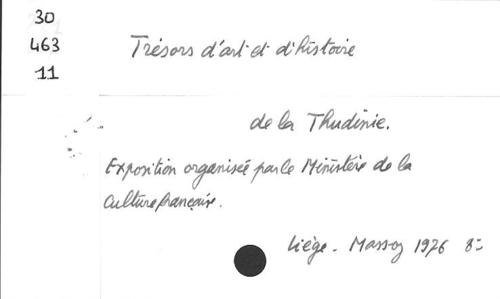 30
463
11
Trésors d'art et d'histoire
de la Thudinie.
Exposition organisée par le Ministère de la
Culture française.
Liège - Massoz 1976 8=